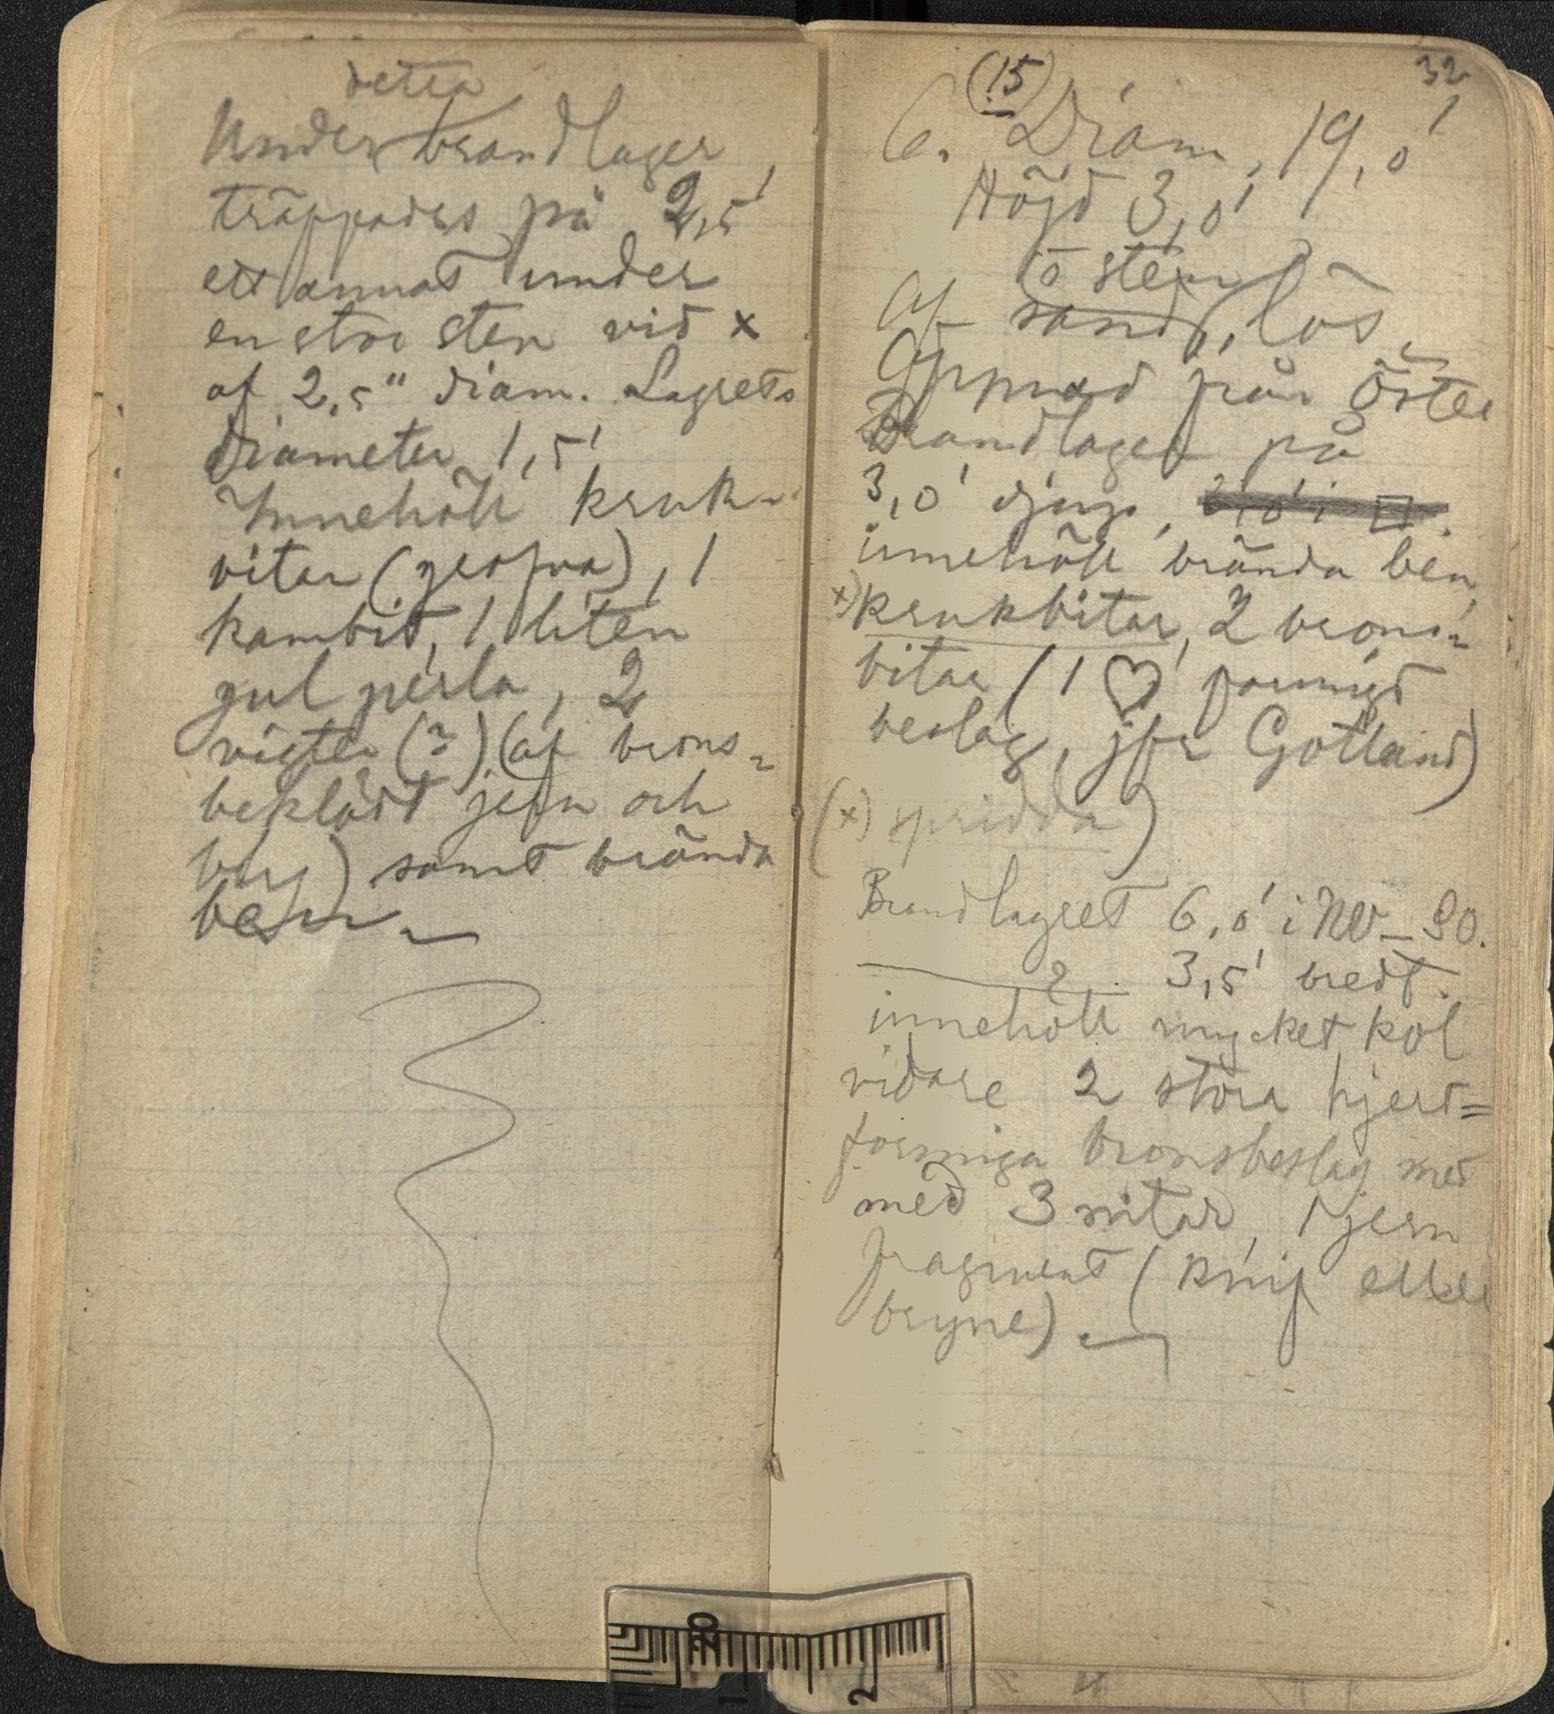 detta
Under brandlager
träppades på 2,5'
ett annat under
en stor sten vid x
af 2,5" diam. Lagrets
diameter 1,5'
Innehöll kruk-
bitar (grofva), 1
kambit, 1 liten
gul perla, 2
vigter (?) (af brons-
beklädt jern och
bly) samt brända
ben.
(15) 32
6. Diam. 19,0'
Höjd 3,0'
o sten
Af sand, lös.
Öppnad från öster
Brandlager på
3,0' djup,
innehöll brända ben,
x) krukbitar, 2 brons-
bitar (1 ♡ formigt
beslag, jfr Gotland)
(x) spridda)
Brandlagret 6,0' i NV–SO.
3,5' bredt.
innehöll mycket kol
vidare 2 stora hjert=
formiga bronsbeslag med
med 3 nitar, 1 jern
fragment (knif eller
bryne).
20
1 2